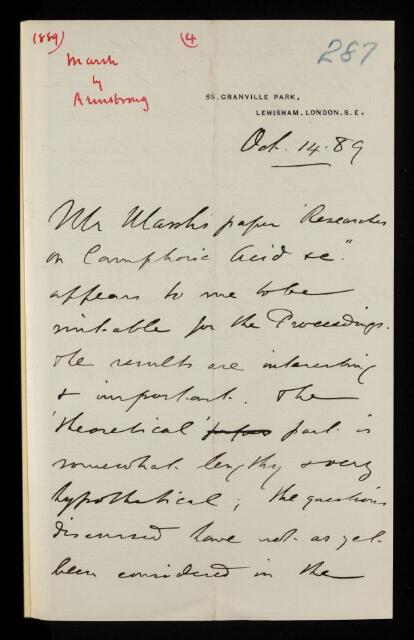 (1889)
(4
287
Marsh
by
Armstrong
55, GRANVILLE PARK,
LEWISHAM. LONDON. S.E.
Oct. 14. 89
Mr Marsh's paper "Researches
on Camphoric Acid &c."
appears to me to be
suitable for the Proceedings.
The results are interesting
& important. The
'theoretical' part is
somewhat lengthy & very
hypothetical; the questions
discussed have not as yet
been considered in the